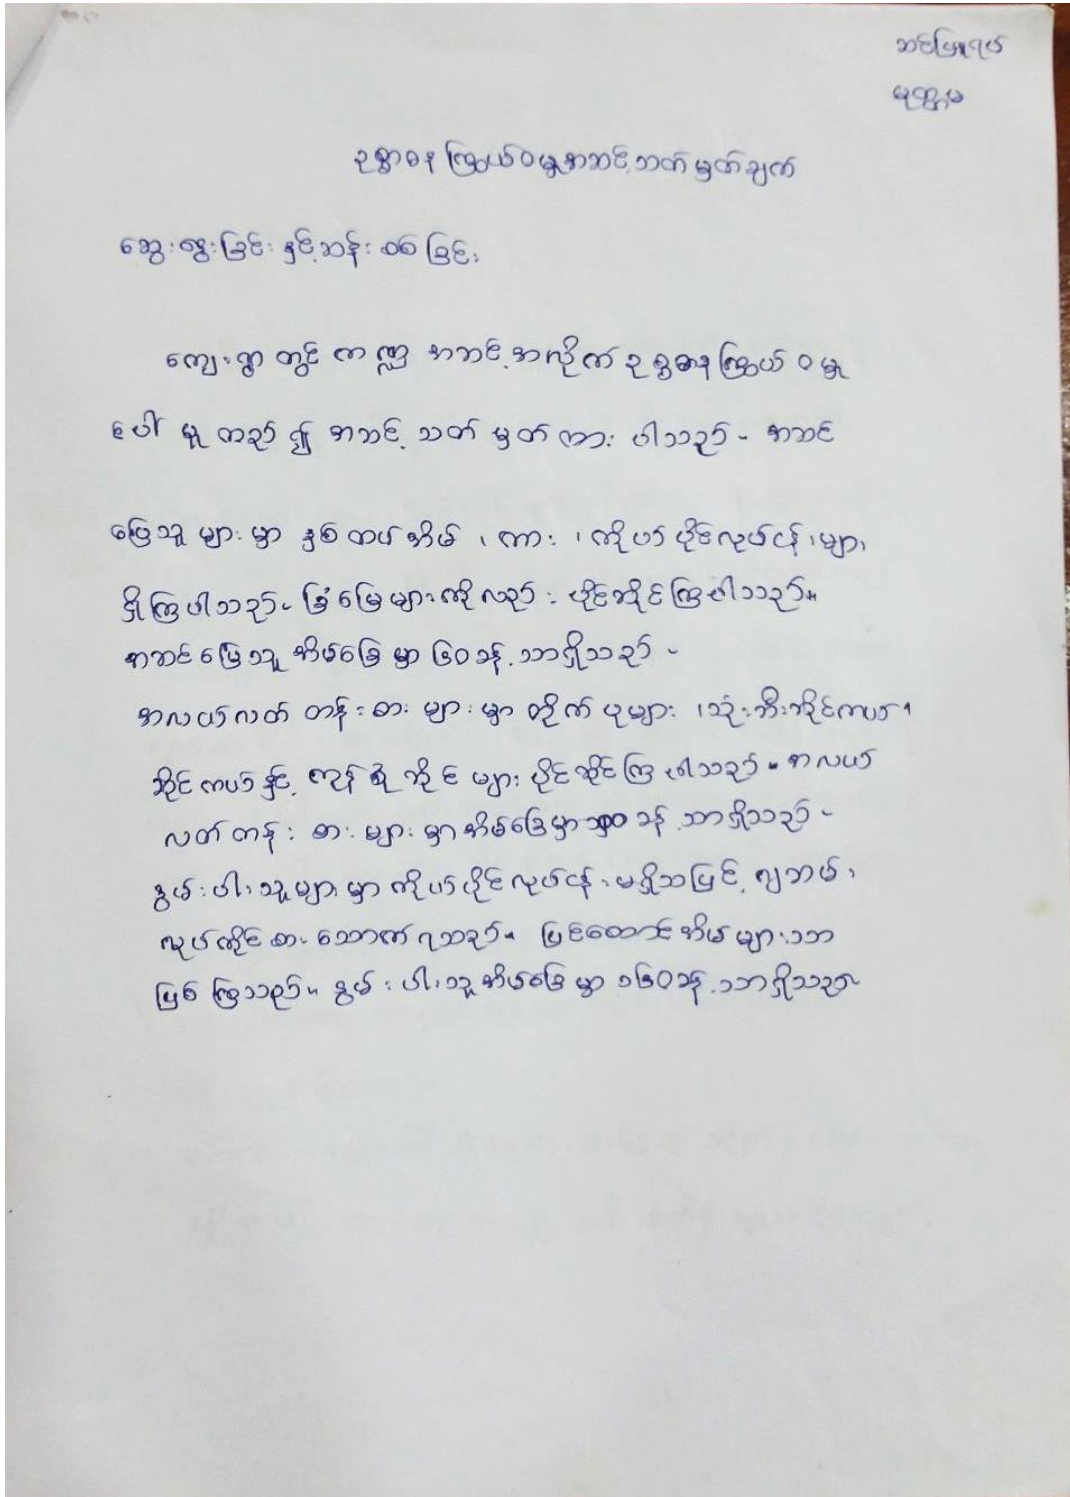 ဆင်ဖြူရပ်
မုတ္တမ
ဥစ္စာဓန ကြွယ်ဝမှုအဆင့်သတ်မှတ်ချက်
ဆွေးနွေးခြင်း နှင့်ဆန်းစစ်ခြင်း
ကျေးရွာတွင် ကဏ္ဍ အဆင့်အလိုက် ဥစ္စဓနကြွယ်ဝမှု
ပေါ်မူတည်၍ အဆင့်သတ်မှတ်ထားပါသည်။ အဆင်
ပြေသူများမှာ နှစ်ထပ်အိမ်၊ ကား၊ ကိုယ်ပိုင်လုပ်ငန်းများ
ရှိကြပါသည်။ ခြံမြေများကိုလည်း ပိုင်ဆိုင်ကြပါသည်။
အဆင်ပြေသူ အိမ်ခြေမှာ ၆၀ ခန့်သာရှိသည်။
အလယ်လတ်တန်းစားများမှာ တိုက်ပုများ၊ သုံးဘီးဆိုင်ကယ်၊
ဆိုင်ကယ်နှင့် ကုန်စုံဆိုင်များ ပိုင်ဆိုင်ကြပါသည်။ အလယ်
လတ်တန်းစားများမှာအိမ်ခြေမှာ ခန့်သာရှိသည်။
နွမ်းပါးသူများမှာ ကိုယ်ပိုင်လုပ်ငန်းမရှိသဖြင့် ကျဘမ်း
လုပ်ကိုင်စားသောက်ရသည်။ ပြင်ထောင်အိမ်များသာ
ဖြစ်ကြသည်။ နွမ်းပါးသူအိမ်ခြေမှာ ၁၆၀ ခန့်သာရှိသည်။